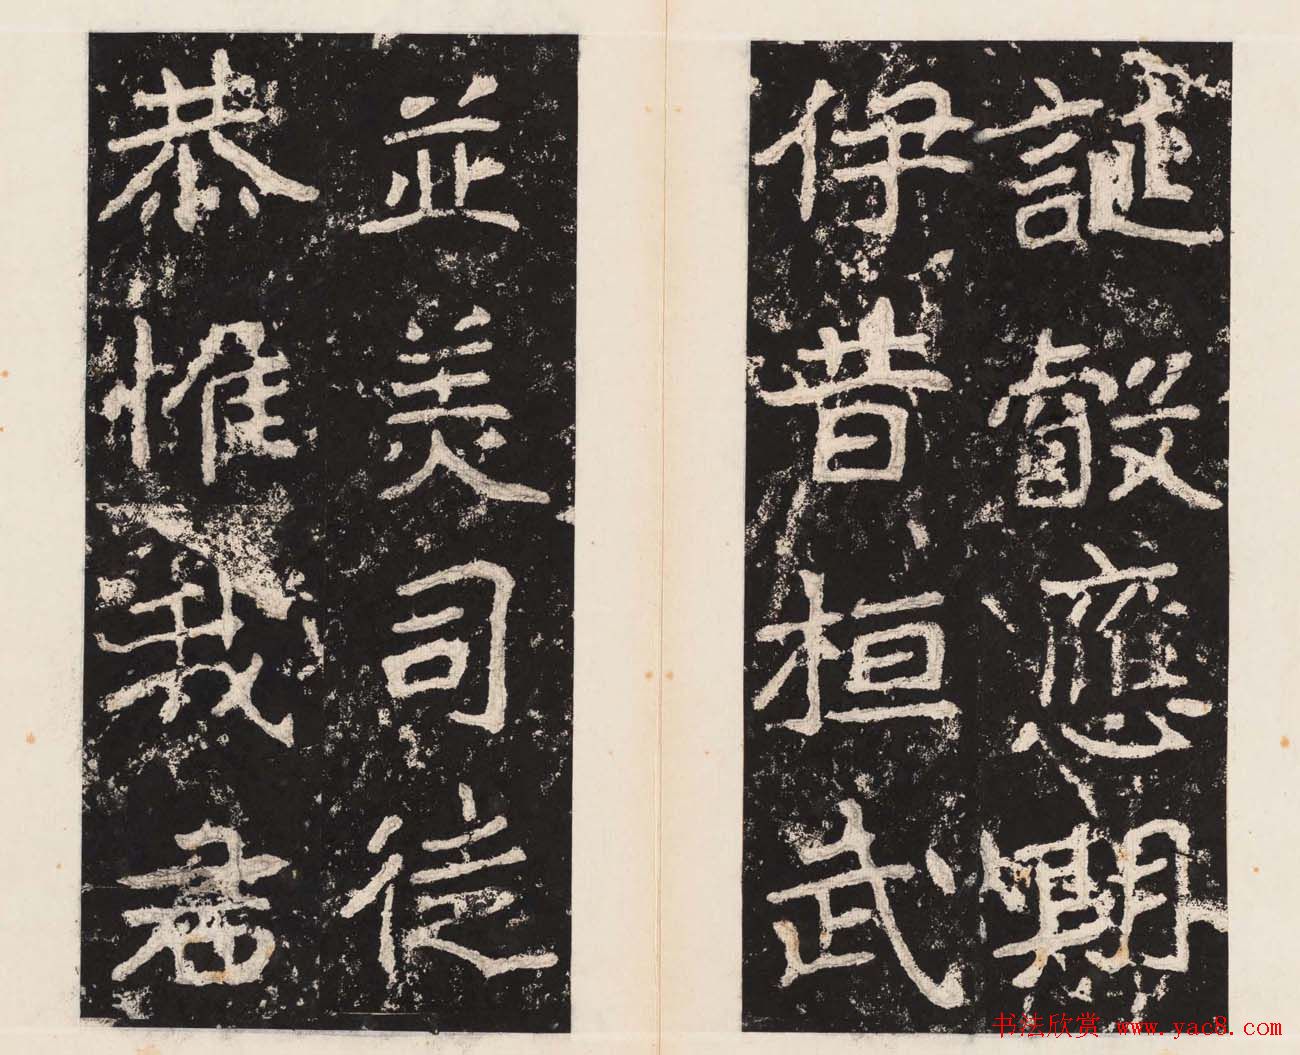 誕叡應期
伊昔桓武
並美司徒
恭惟我君
书法欣赏 www.yac8.com